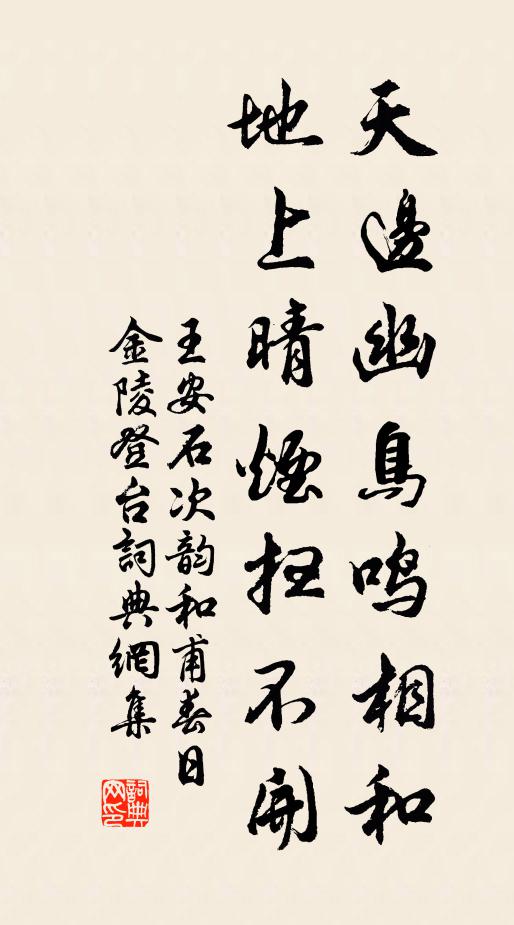 天邊幽鳥鳴相和
地上晴煙扫不開
王安石次韵和甫春日
金陵登台詞典網集
詞典网印